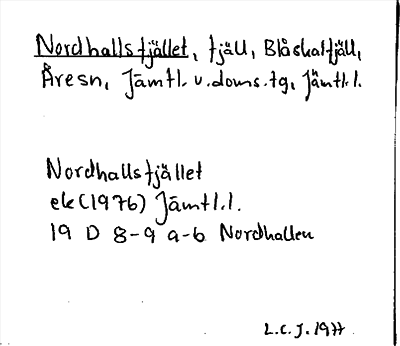 Nordhallsfjället, fjäll, Blåshalfjäll,
Åresn, Jämtl. v. doms.tg, Jämtl.l.
Nordhallsfjället
ek (1976) Jämtl.l.
19 D 8-9 a-b Nordhallen
L.C.J. 1977